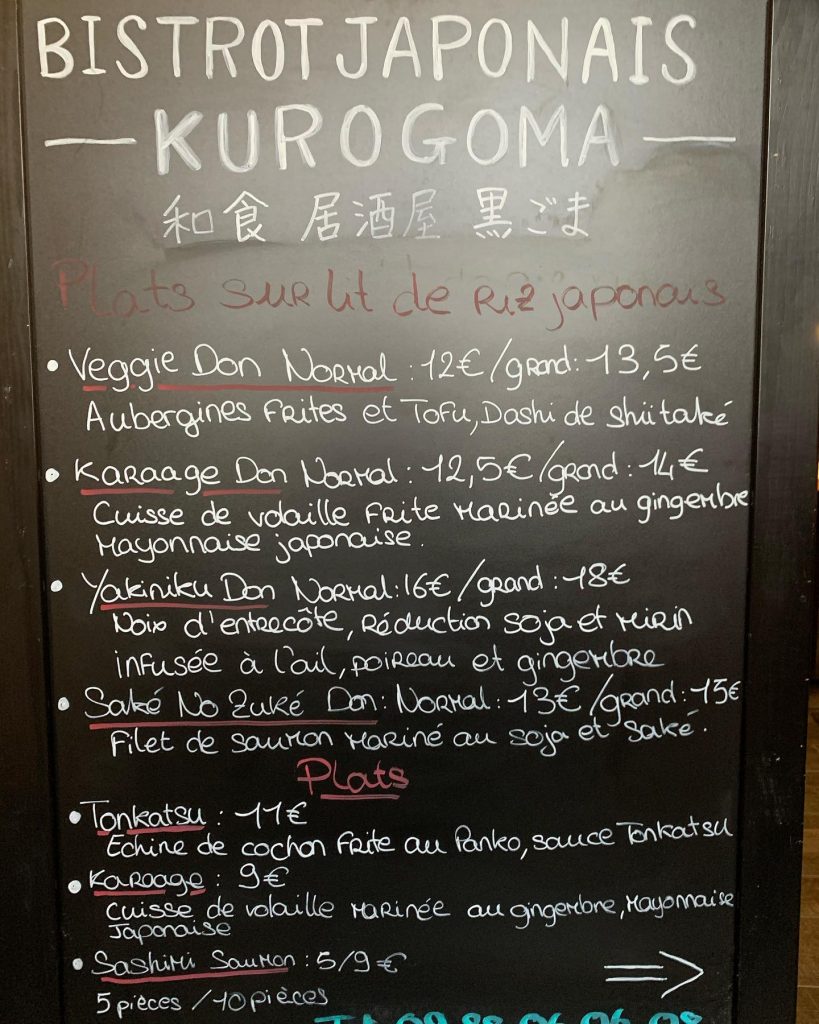 BISTROT JAPONAIS
— KUROGOMA —
和食 居酒屋 黒ごま
Plats sur lit de riz japonais
• Veggie Don Normal : 12€ / grand : 13,5€
Aubergines frites et Tofu, Dashi de shiitaké
• Karaage Don Normal : 12,5€ / grand : 14€
Cuisse de volaille frite marinée au gingembre
Mayonnaise japonaise.
• Yakiniku Don Normal : 16€ / grand : 18€
Noix d'entrecôte, réduction soja et mirin
infusée à l'ail, poireau et gingembre
• Saké No Zuké Don : Normal : 13€ / grand : 15€
Filet de saumon mariné au soja et saké.
Plats
• Tonkatsu : 11€
Echine de cochon frite au Panko, sauce Tonkatsu
• Karaage : 9€
Cuisse de volaille marinée au gingembre, Mayonnaise
Japonaise
• Sashimi Saumon : 5/9€ ⇒
5 pièces / 10 pièces